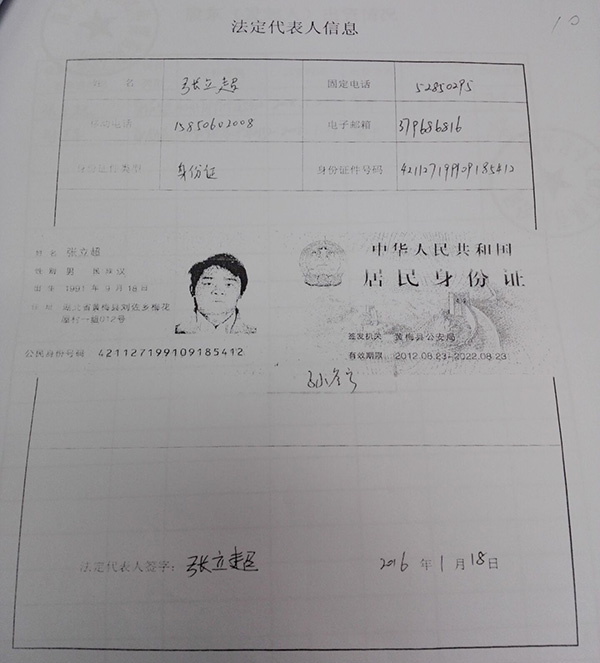 10
法定代表人信息
姓 名 张立超 固定电话 52850295
移动电话 15850602008 电子邮箱 379686816
身份证件类型 身份证 身份证件号码 421127199109185412
姓名 张立超
性别 男 民族 汉
出生 1991 年 9 月 18 日
住址 湖北省黄梅县刘佐乡梅花
村一组012号
公民身份号码 421127199109185412
中华人民共和国
居民身份证
签发机关 黄梅县公安局
有效期限 2012.08.23-2022.08.23
法定代表人签字: 张立超 2016 年 1 月 18 日